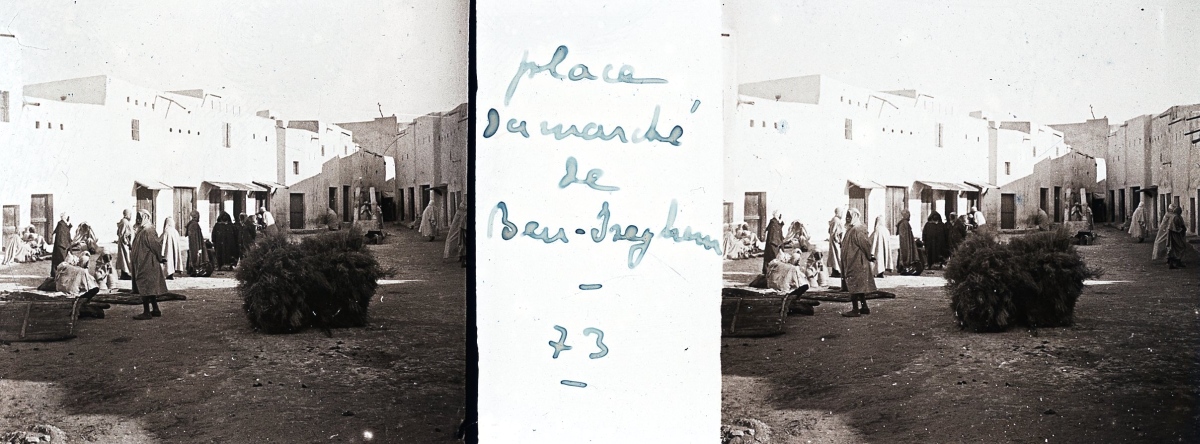 place
Du marché
de
Ben-Isreghem
—
73
—